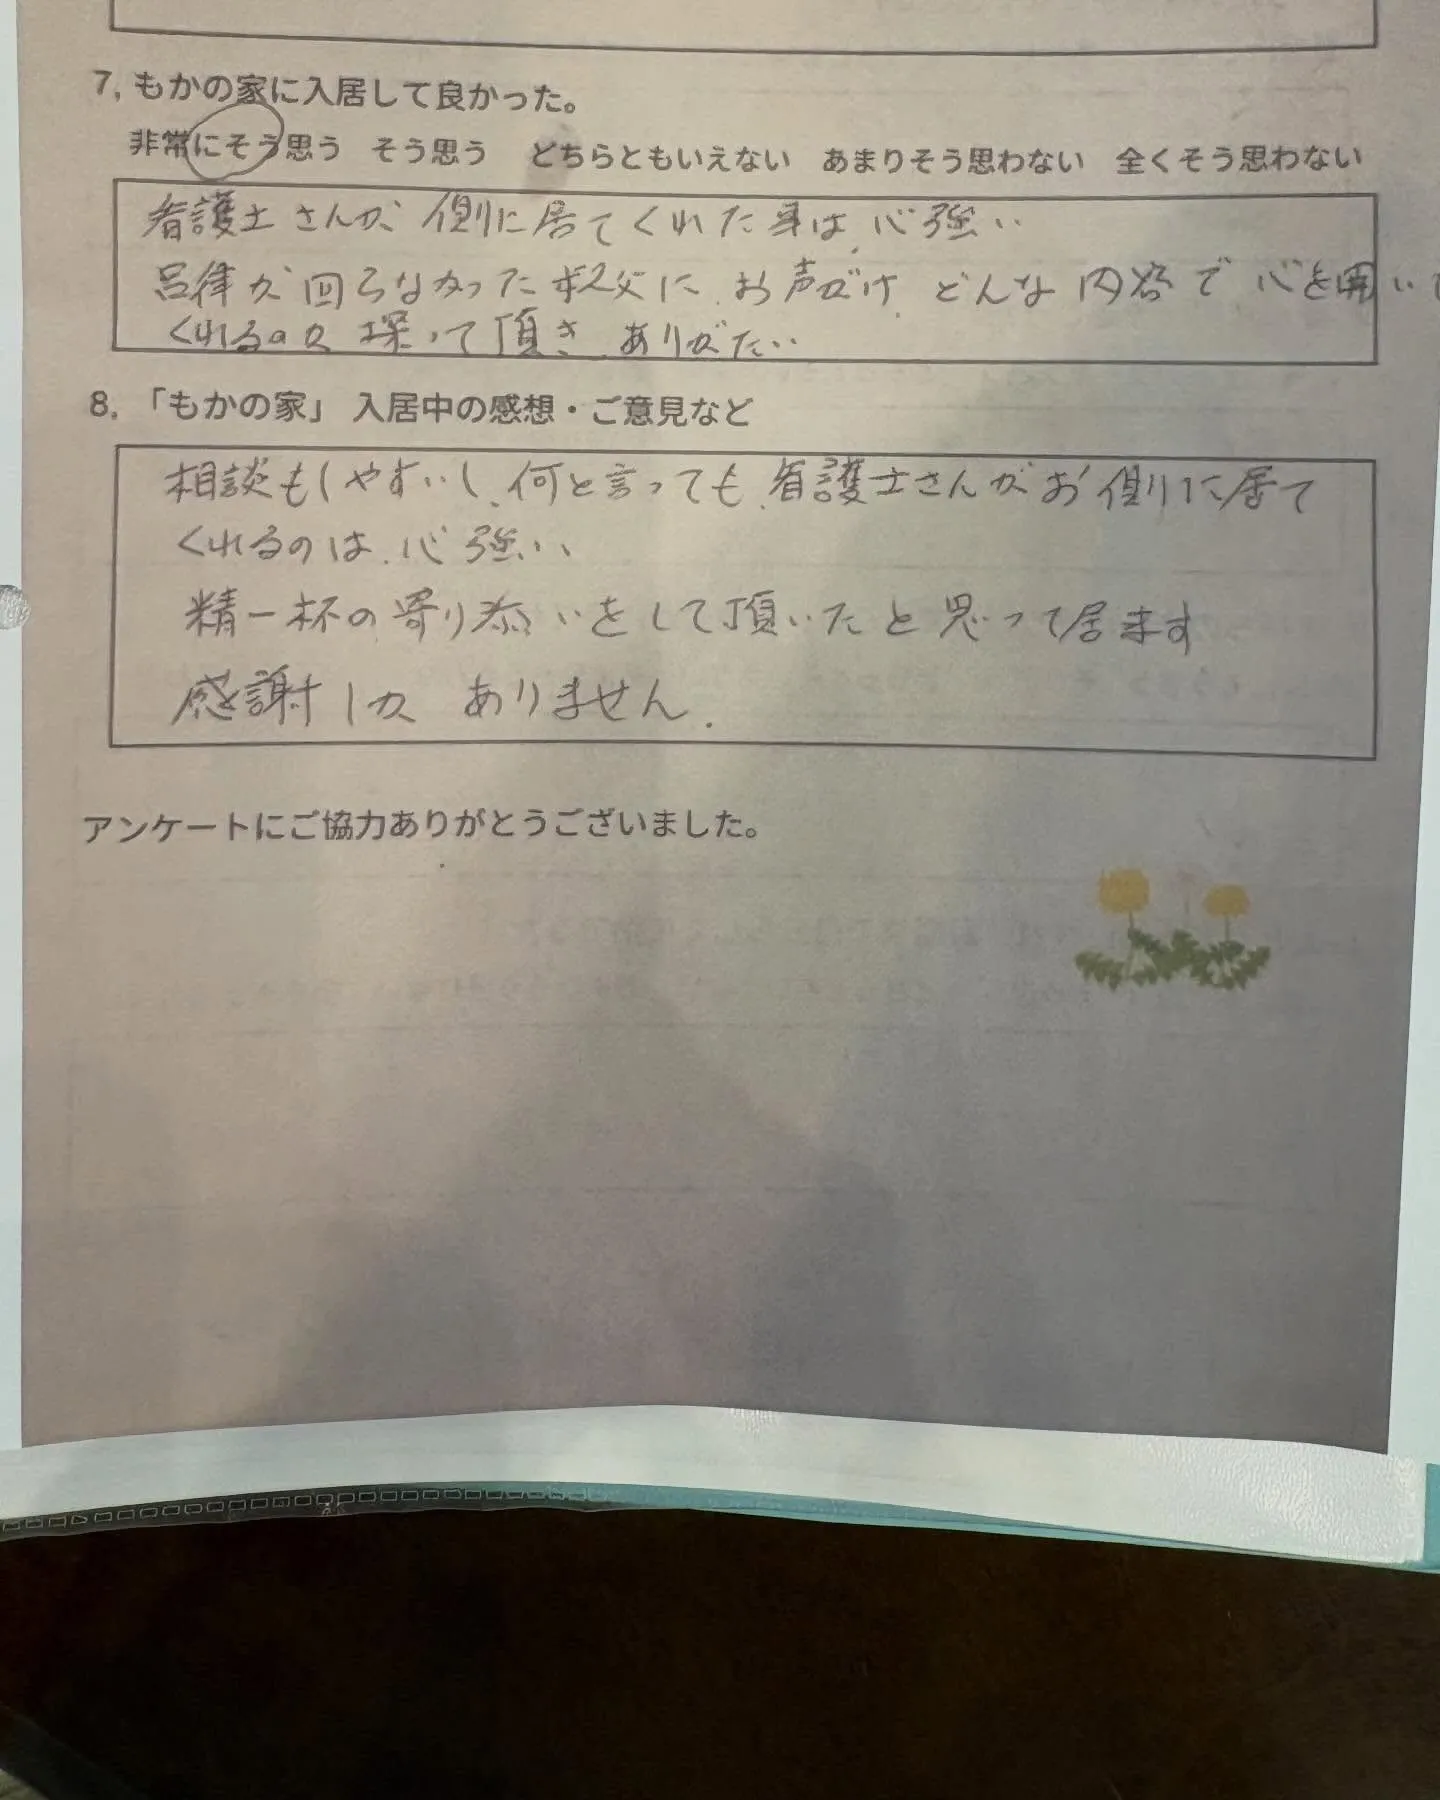 7, もかの家に入居して良かった。
非常にそう思う そう思う どちらともいえない あまりそう思わない 全くそう思わない
看護士さんが 側に居てくれた事は、心強い
呂律が回らなかった 父に、お声がけ、どんな内容で 心を開いて
くれるのか 探って頂き、ありがたい
8, 「もかの家」 入居中の感想・ご意見など
相談もしやすいし、何と言っても、看護士さんがお側に居て
くれるのは、心強い、
精一杯の寄り添いをして頂いたと思って居ます
感謝しか ありません.
アンケートにご協力ありがとうございました。